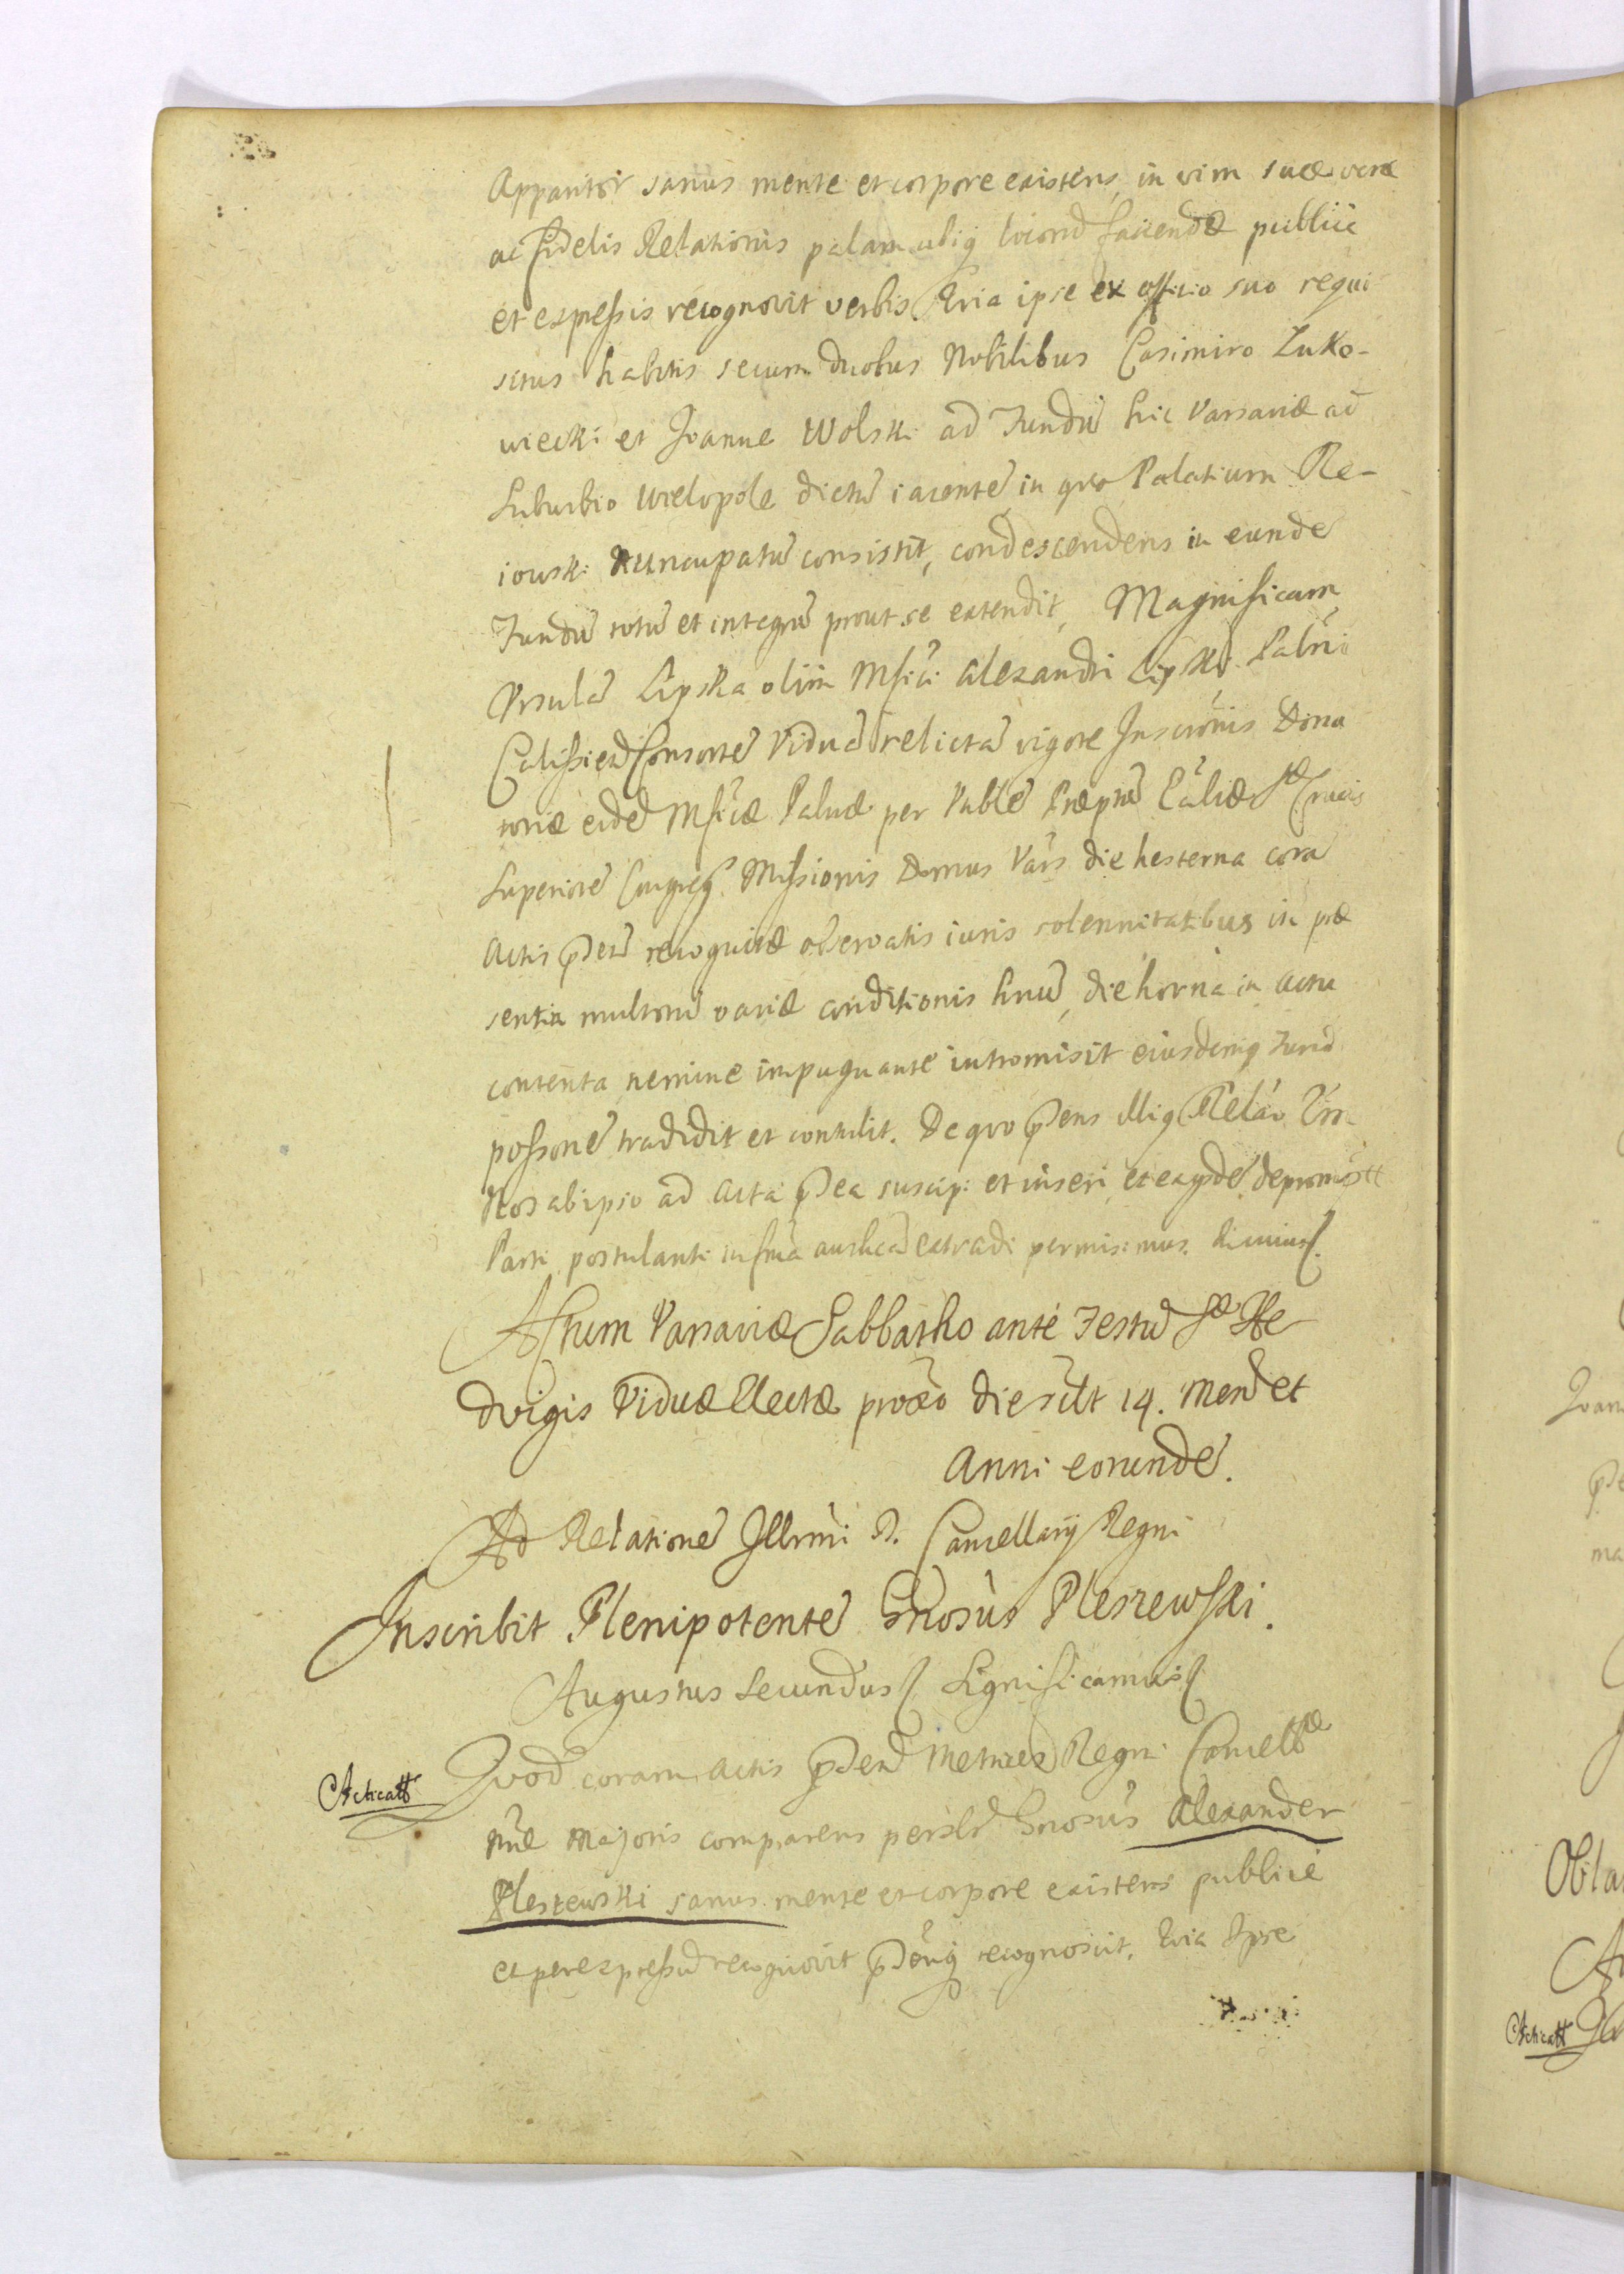 Apparitor sanus mente et corpore existens, in vim suæ veræ
ac fidelis Relationis palam ubiq locorũ faciendæ publice
et expressis recognovit verbis. Qvia ipse ex officio suo requi
situs habitis secum duobus Nobilibus Casimiro Zuko-
wiecki et Joanne Wolski ad Fundũ hic Varsaviæ ad
Suburbio Wielopole dictũ iacentẽ in qvo Palatium Re-
iowski nuncupatũ consistit, condescendens in eundẽ
Fundũ totũ et integrũ prout se extendit, Magnificam
Vrsulã Lipska olim Mfici Alexandri Lipski Palni
Calissien Consortẽ Viduã relictã vigore Inscrõnis Dona
toriæ eidẽ Mficæ Palnæ per Vnblẽ Præptũ Ecaliæ Sæ Crucis
Superiorẽ Congreg Missionis Domus Vars die hesterna corã
Actis pñtũ recognitæ observatis iuris solennitatibus in præ
sentia multorũ variæ conditionis hñũ, die horna in actu
contenta nemine impugnante intromisit eiusdemq Fundi
possionẽ tradidit et contulit. De qvo pñens illiq Relão
Nos ab ipso ad Acta pñtia suscipi et inseri, et exinde depromptũ
Parti postulanti in forma authen extradi permisimus. In cuius
Actum Varsaviæ Sabbatho ante Festũ Sæ He
dvigis Viduæ Electæ proxõ die scilt 14. Mens et
Anni eorundẽ.
Ad Relationẽ Illrmi D. Cancellarij Regni
Inscribit Plenipotentẽ Gnosus Pleszewski.
Augustus Secundus Significamus
Acticatt
Qvod coram Actis pñtibus Metrices Regni Cancellæ
nræ Majoris comparens persłr Gnosus Alexander
Pleszewski sanus mente et corpore existens publice
et per expressũ recognovit pñtiq recognoscit. Qvia Ipse